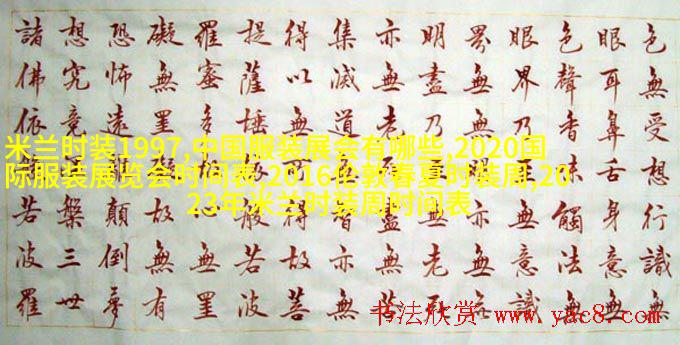 色無受想行識無
眼耳鼻舌身意無
色聲香味觸法無
眼界乃無意識
界無無亦無
明盡乃無老死
亦無老盡無苦
集滅道智亦無
得以無得故菩
提薩埵般若波
羅蜜多無罣
礙無罣故無有
恐怖遠顛倒夢
想究竟槃三世
諸佛依若波羅
米兰时装1997,中国服装展会有哪些,2020国
际服装展览会时间表,2016伦敦春夏时装周,20
23年米兰时装周时间表
书法欣赏 www.yac8.com